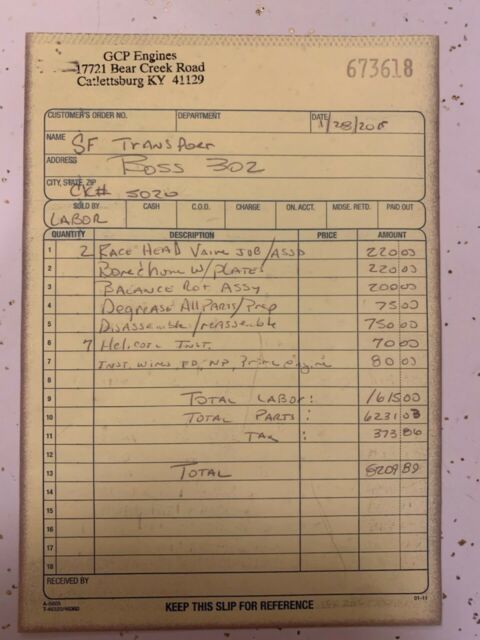 GCP Engines
17721 Bear Creek Road
Catlettsburg KY 41129
673618
CUSTOMER'S ORDER NO. DEPARTMENT DATE 1/28/20
NAME SF Transport
ADDRESS Boss 302
CITY, STATE, ZIP CK# 5020
SOLD BY CASH C.O.D. CHARGE ON. ACCT. MDSE. RETD. PAID OUT
LABOR
QUANTITY DESCRIPTION PRICE AMOUNT
1 2 Race Head Valve Job/Ass'd 220 00
2 Bore & hone w/plates 220 00
3 Balance Rot Assy 200 00
4 Degrease All Parts/Prep 75 00
5 Disassemble/reassemble 750 00
6 7 Helicoil Inst. 70 00
7 Inst. wires, FD, NP, Prime engine 80 00
8
9 Total Labor: 1615 00
10 Total Parts: 6231 03
11 Tax: 373 86
12
13 Total 8209 89
14
15
16
17
18
RECEIVED BY
A-5805
T-46320/46360
KEEP THIS SLIP FOR REFERENCE
01-11